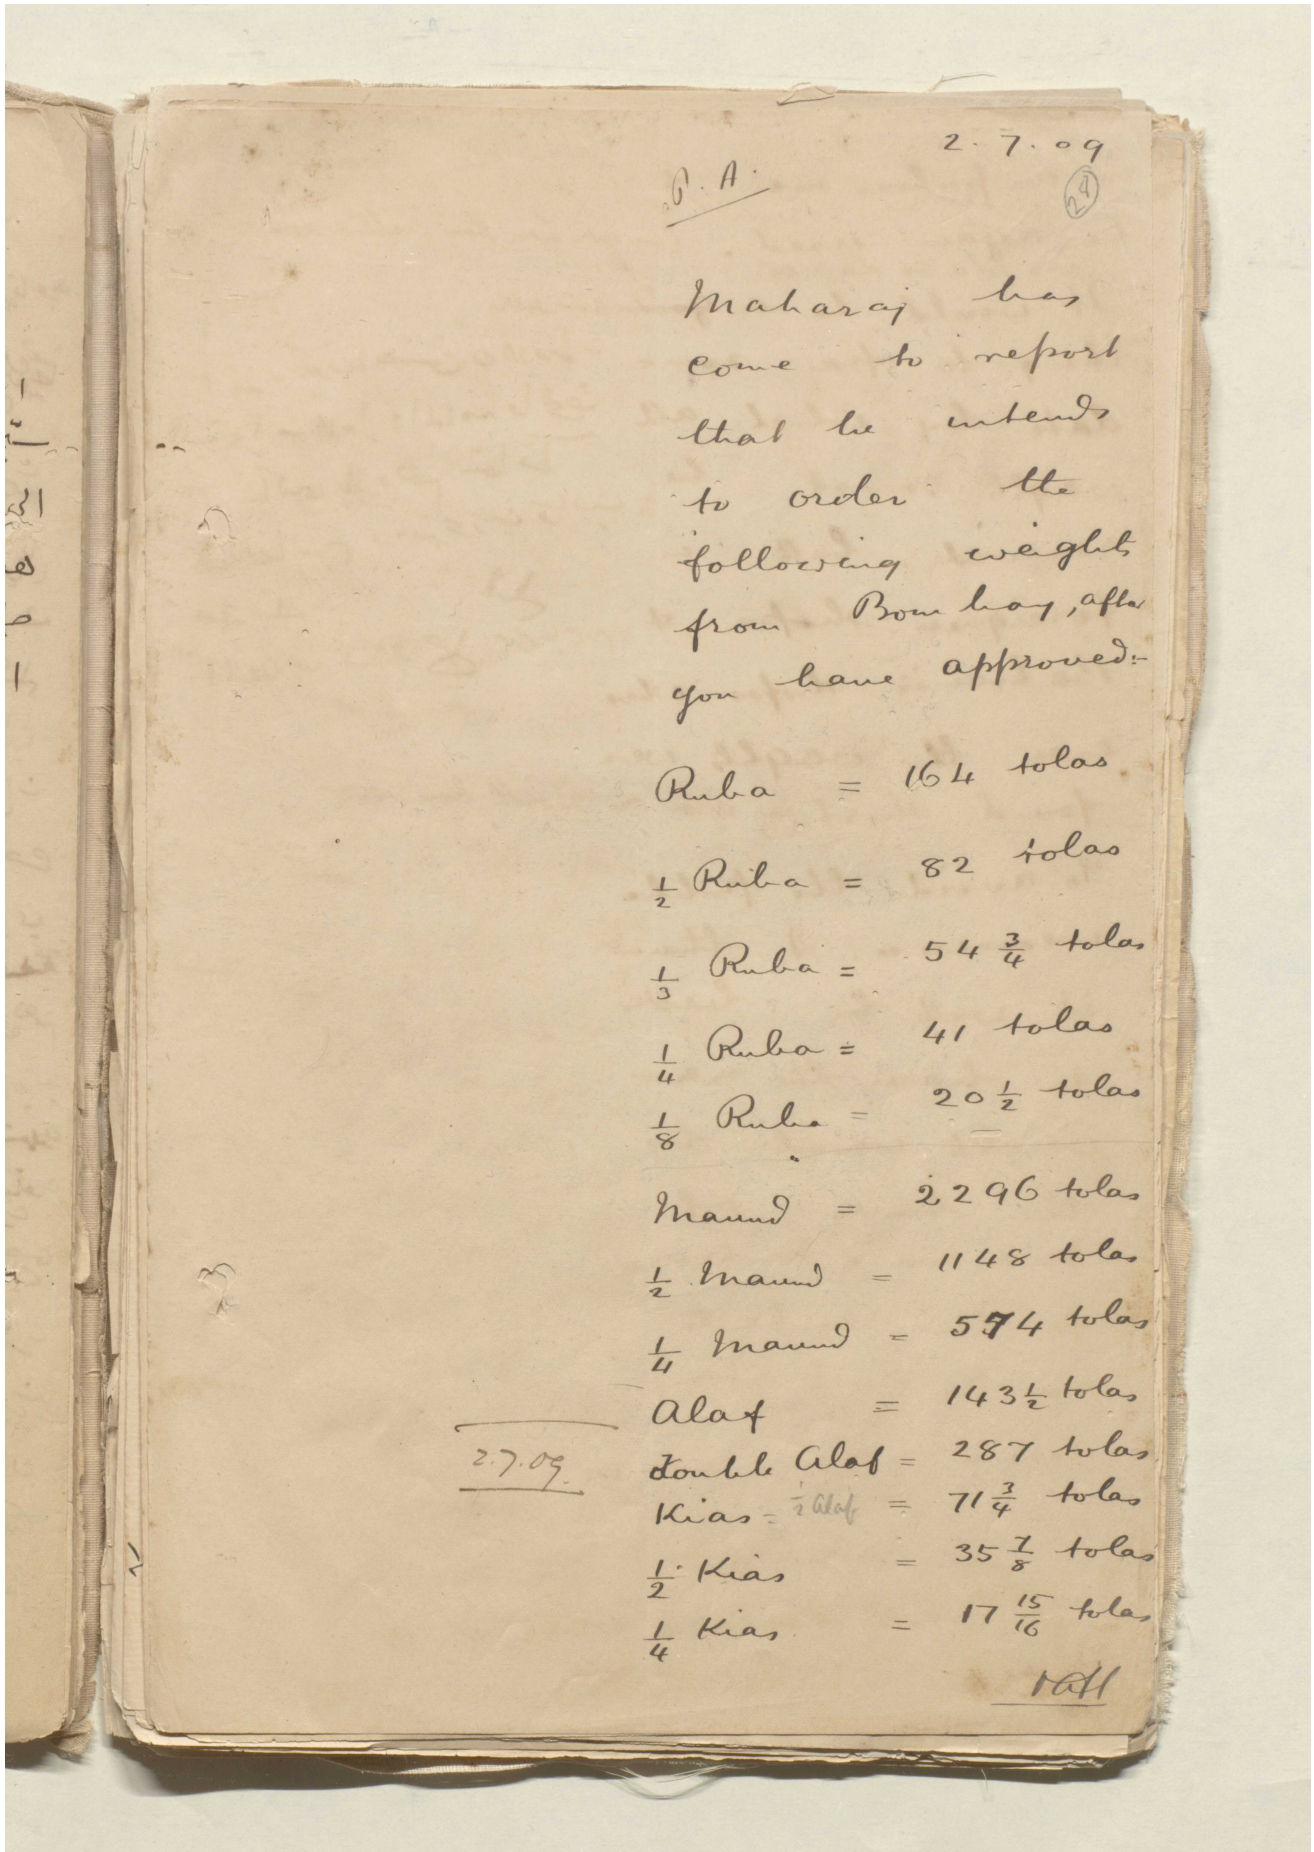 2.7.09
P. A.
28
Maharaj has
come to report
that he intends
to order the
following weights
from Bombay, after
you have approved:-
Ruba = 164 tolas
1/2 Ruba = 82 tolas
1/3 Ruba = 54 3/4 tolas
1/4 Ruba = 41 tolas
1/8 Ruba = 20 1/2 tolas
Maund = 2296 tolas
1/2 Maund = 1148 tolas
1/4 Maund = 574 tolas
Alaf = 143 1/2 tolas
Double Alaf = 287 tolas
2.7.09.
Kias = 1/2 Alaf = 71 3/4 tolas
1/2 Kias = 35 7/8 tolas
1/4 Kias = 17 15/16 tolas